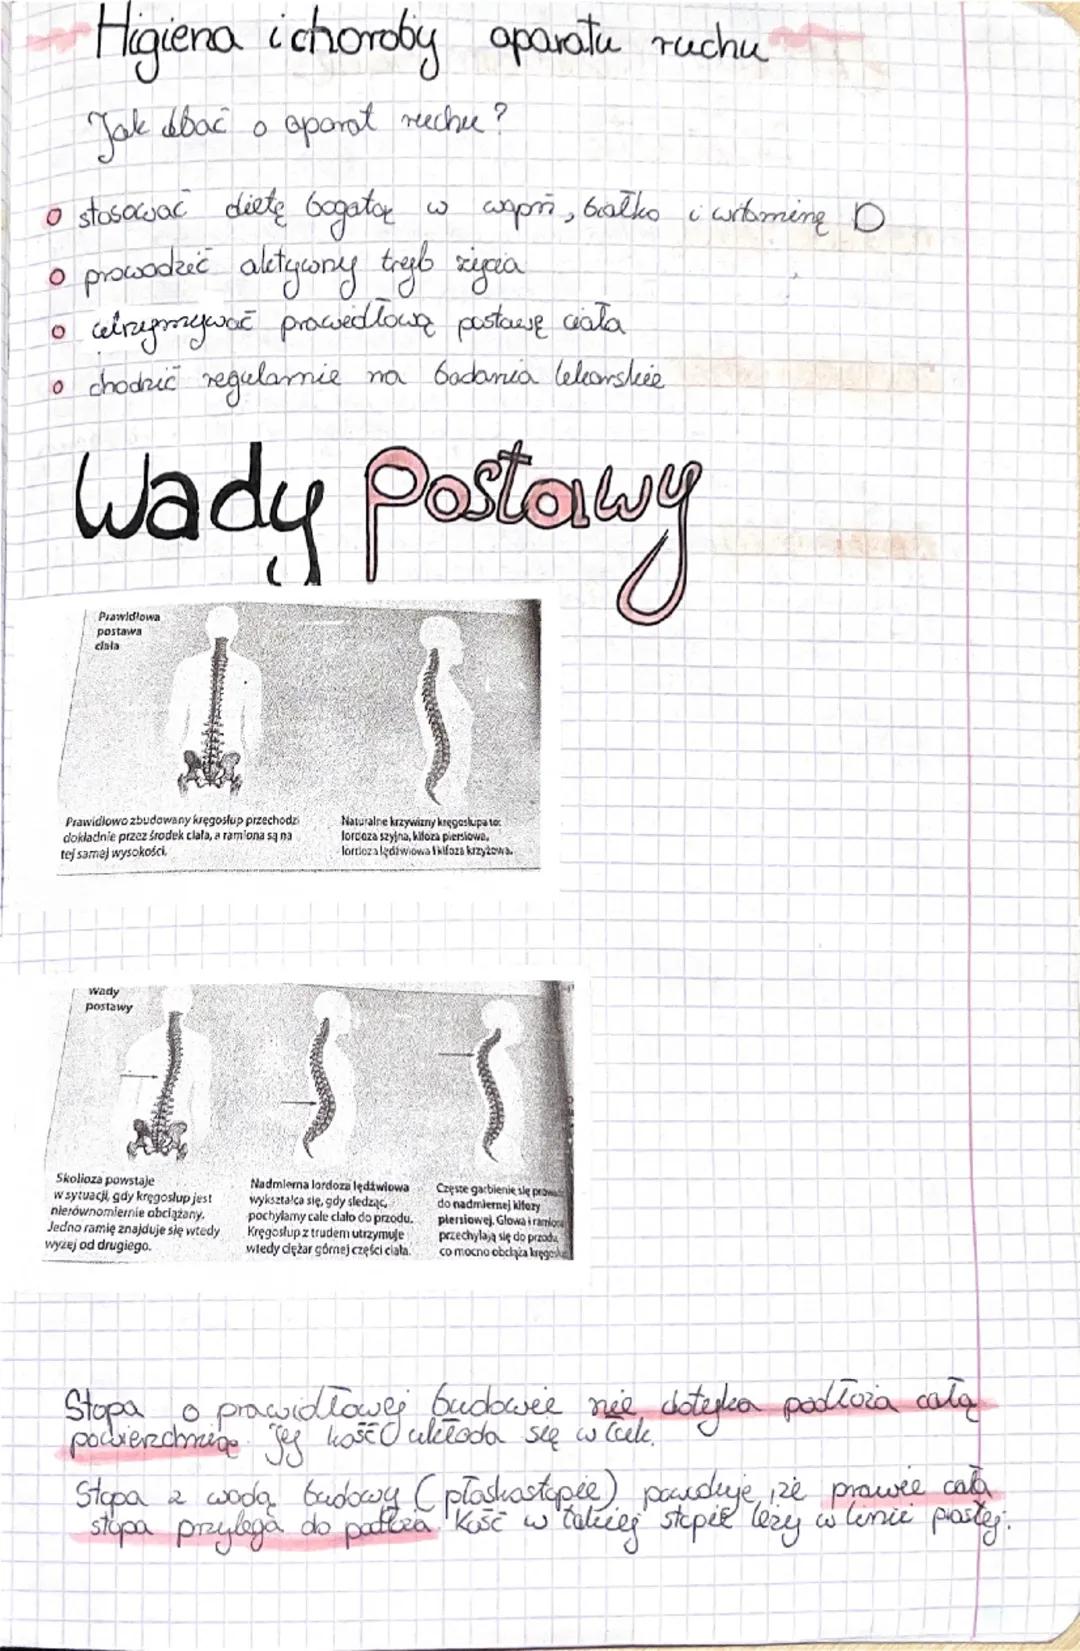 Higiena i choroby aparatu ruchu
Jak dbać o aparat ruchu?
o stosować dietę bogatą w wapń, białko i witaminę D
o prowadzić aktywny tryb życia
o utrzymywać prawidłową postawę ciała
o chodzić regularnie na badania lekarskie
Wady Postawy
Prawidłowa
postawa
ciała
Prawidłowo zbudowany kręgosłup przechodzi
dokładnie przez środek ciała, a ramiona są na
tej samej wysokości.
Naturalne krzywizny kręgosłupa to:
lordoza szyjna, kifoza piersiowa,
lordoza lędźwiowa i kifoza krzyżowa.
Wady
postawy
Skolioza powstaje
w sytuacji, gdy kręgosłup jest
nierównomiernie obciążany.
Jedno ramię znajduje się wtedy
wyżej od drugiego.
Nadmierna lordoza lędźwiowa
wykształca się, gdy siedząc,
pochylamy całe ciało do przodu.
Kręgosłup z trudem utrzymuje
wtedy ciężar górnej części ciała.
Częste garbienie się
do nadmiernej kifozy
piersiowej. Głowa i ramiona
przechylają się do przodu,
co mocno obciąża
Stopa o prawidłowej budowie nie dotyka podłoża całą
powierzchnią. Jej kość układa się w łuk.
Stopa z wadą budowy (płaskostopie) powoduje, że prawie cała
stopa przylega do podłoża. Kość w takiej stopie leży w linie prostej.